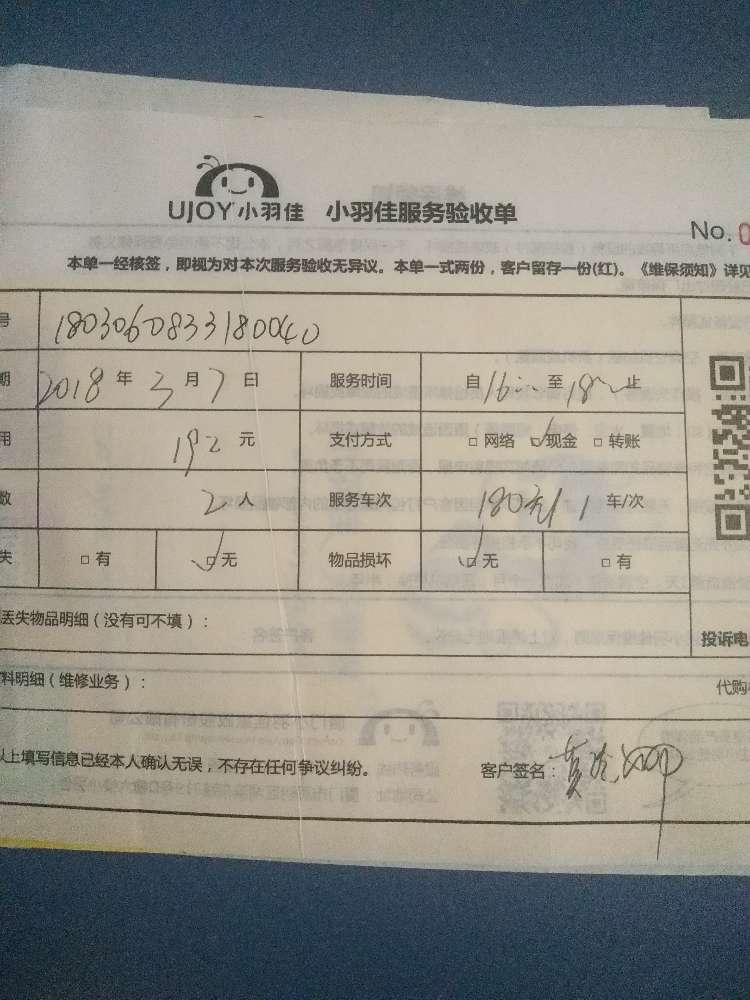 UJOY 小羽佳 小羽佳服务验收单
No. 0
本单一经核签，即视为对本次服务验收无异议。本单一式两份，客户留存一份(红)。《维保须知》详见
号 1803060833180040
期 2018 年 3 月 7 日 服务时间 自 16:00 至 18:00 止
用 192 元 支付方式 □ 网络 ☑ 现金 □ 转账
数 2 人 服务车次 1 车/次
失 □ 有 ☑ 无 物品损坏 ☑ 无 □ 有
丢失物品明细（没有可不填）：
投诉电
料明细（维修业务）：
代购
以上填写信息已经本人确认无误，不存在任何争议纠纷。 客户签名：